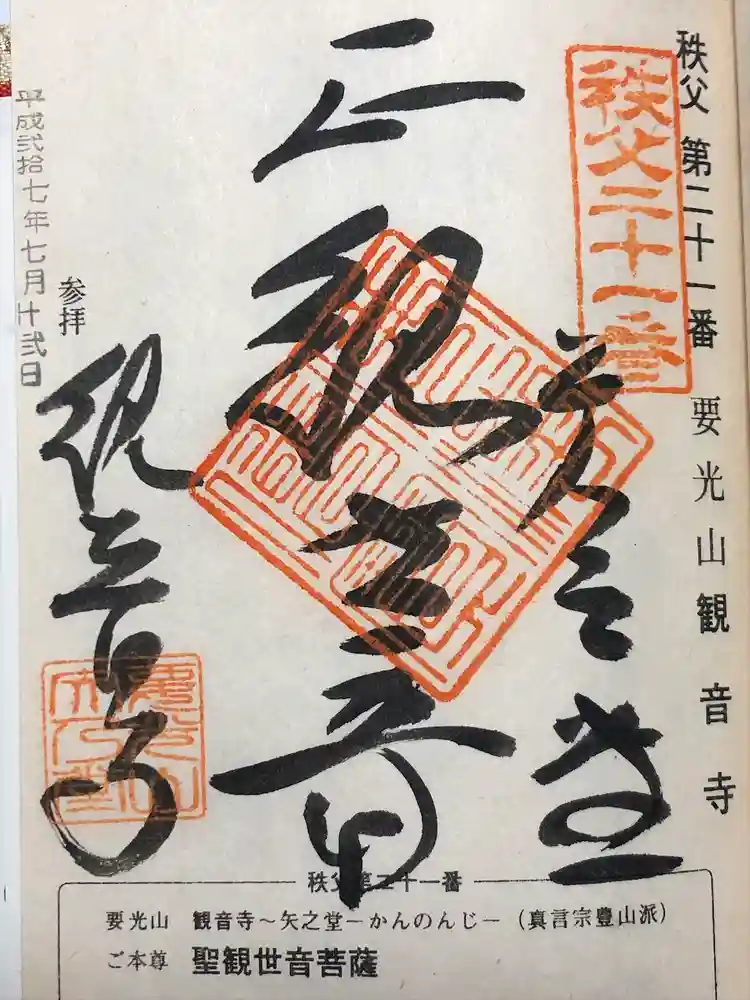 秩父 第二十一番 要光山観音寺
秩父二十一番
矢之堂
正観世音
観音寺
参拝
平成弐拾七年七月十弐日
秩父第二十一番
要光山 観音寺〜矢之堂−かんのんじ−(真言宗豊山派)
ご本尊 聖観世音菩薩